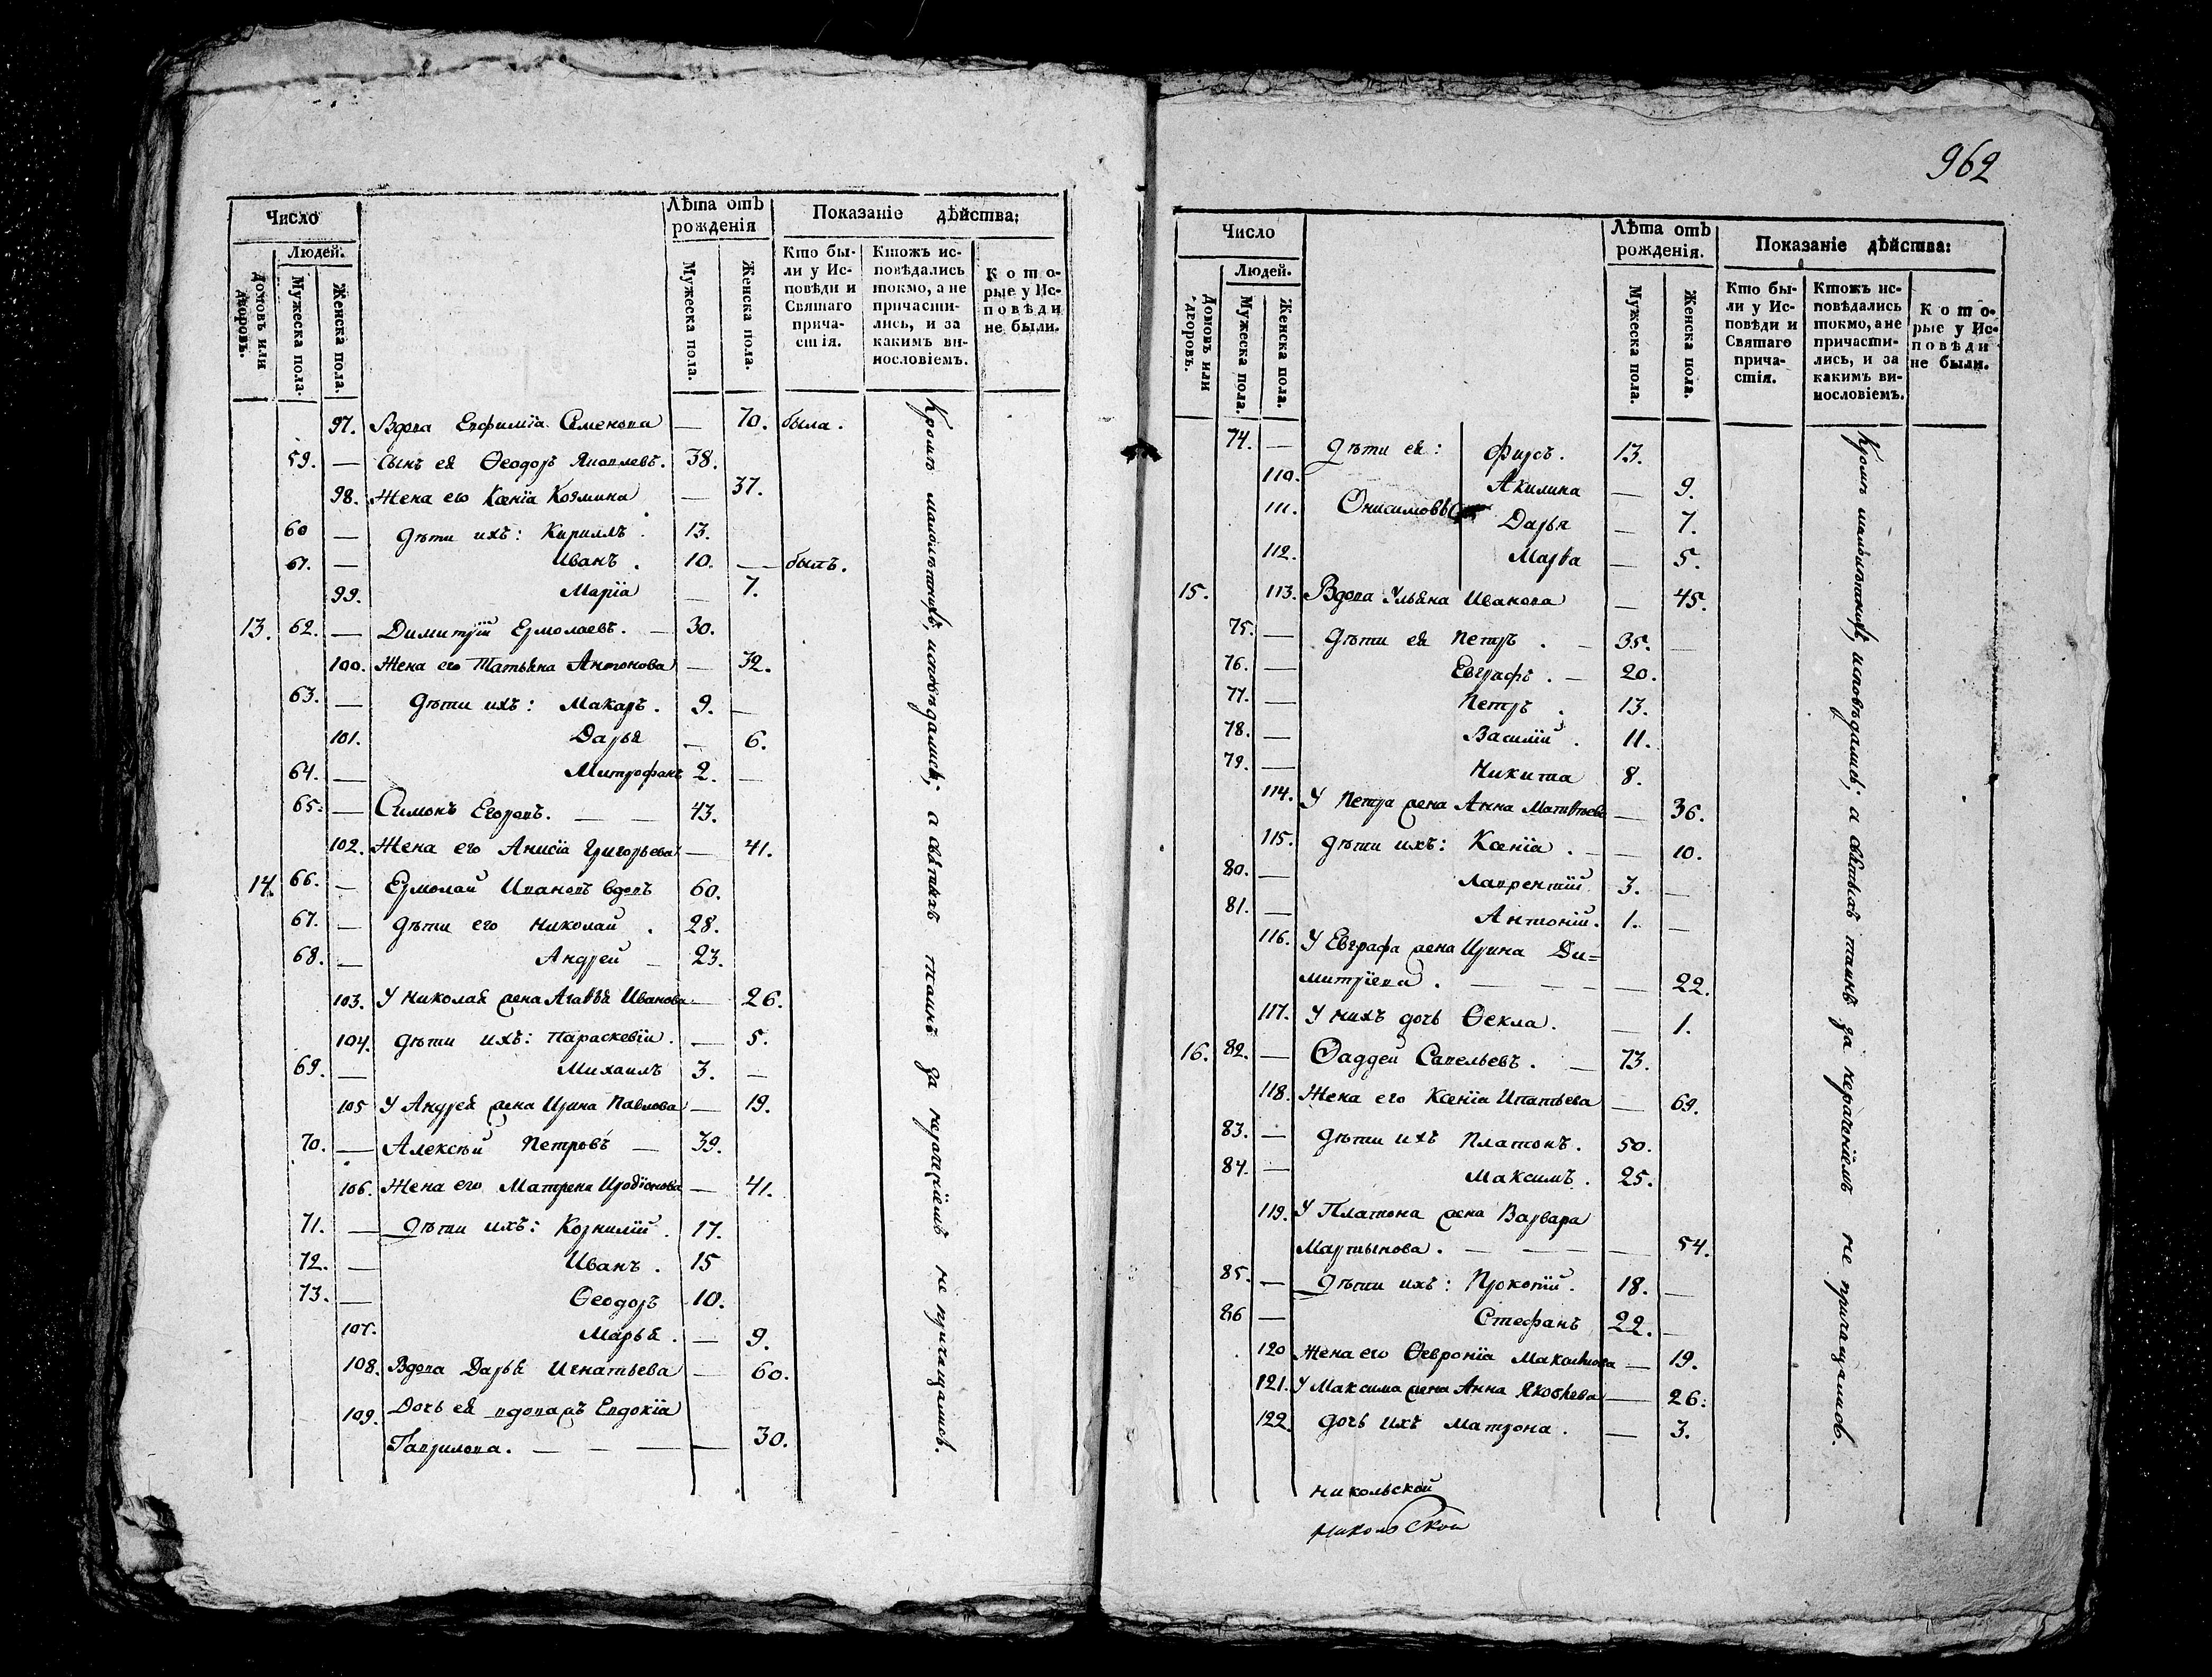 962
Число
Людей.
Домовъ или дворовъ.
Мужеска пола.
Женска пола.
Лѣта отъ рожденія
Мужеска пола.
Женска пола.
Показаніе дѣйства:
Кто бы-
ли у Ис-
повѣди и
Святаго
прича-
стія.
Ктожъ ис-
повѣдались
токмо, а не
причасти-
лись, и за
какимъ ви-
нословіемъ.
Кото-
рые у Ис-
повѣди
не были.
97. Вдова Евфимія Семенова — 70. была.
59. — Сынъ ея Ѳеодоръ Яковлевъ. 38.
98. Жена его Ксенія Козмина — 37.
60 — Дѣти ихъ: Кириллъ . 13.
61. — Иванъ . 10. — былъ.
99. Марія — 7.
13. 62. — Димитрій Ермолаевъ. — 30.
100. Жена его Татьяна Антонова — 32.
63. — Дѣти ихъ: Макаръ . 9. —
101. Дарья — 6.
64. — Митрофанъ 2. —
65. — Симонъ Егоровъ. — — 43.
102. Жена его Анисія Григорьева — 41.
14. 66. — Ермолай Ивановъ вдовъ 60.
67. — Дѣти его Николай . 28.
68. — Андрей — 23.
103. У Николая жена Агавья Иванова — 26.
104. Дѣти ихъ: Параскевіи . — 5.
69. — Михаилъ 3. —
105 У Андрея жена Ирина Павлова — 19.
70. — Алексѣй Петровъ — 39.
106. Жена его Матрена Иродіонова — 41.
71. — Дѣти ихъ: Корнилій . 17.
72. — Иванъ . 15
73. — Ѳеодоръ 10.
107. Марья . — 9.
108. Вдова Дарья Игнатьева — 60.
109. Дочь ея вдова жъ Евдокія
Гаврилова. — — — — 30.
Кромѣ малолѣтныхъ, исповѣдались; а святыхъ таинъ за нераченіемъ не причащались.
Число
Людей.
Домовъ или дворовъ.
Мужеска пола.
Женска пола.
Лѣта отъ рожденія.
Мужеска пола.
Женска пола.
Показаніе дѣйства:
Кто бы-
ли у Ис-
повѣди и
Святаго
прича-
стія.
Ктожъ ис-
повѣдались
токмо, а не
причасти-
лись, и за
какимъ ви-
нословіемъ.
Кото-
рые у Ис-
повѣди
не были.
74. — Дѣти ея: Фирсъ. 13.
110. Акилина — 9.
111. Онисимовы Дарья — 7.
112. Марѳа — 5.
15. 113. Вдова Ульяна Иванова — 45.
75. — Дѣти ея Петръ . — 35. —
76. — Евграфъ . — 20.
77. — Петръ . 13.
78. — Василій . 11.
79. — Никита 8.
114. У Петра жена Анна Матвѣева — 36.
115. Дѣти ихъ: Ксенія . — — 10.
80. — Лаврентій 3. —
81. — Антоній. 1. —
116. У Евграфа жена Ирина Ди=
митріева . — — — — 22.
117. У нихъ дочь Ѳекла. — 1.
16. 82. — Ѳаддей Савельевъ. — 73.
118. Жена его Ксенія Ипатьева — 69.
83. — Дѣти ихъ Платонъ. 50.
84. — Максимъ . 25.
119. У Платона жена Варвара
Мартынова . — — — — 54.
85. — Дѣти ихъ: Прокопій. 18. —
86 — Стефанъ 22. —
120 Жена его Ѳевронія Максимова — 19.
121. У Максима жена Анна Яковлева — 26.
122. Дочь ихъ Матрона . — 3.
Кромѣ малолѣтныхъ, исповѣдались; а святыхъ таинъ за нераченіемъ не причащались.
Никольской
Никольской